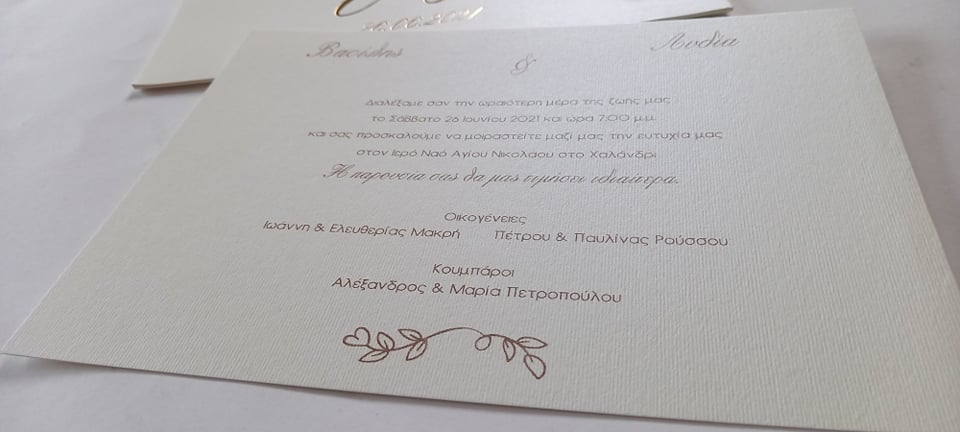 26.06.2021
Βασίλης & Λυδία
Διαλέξαμε σαν την ωραιότερη μέρα της ζωής μας
το Σάββατο 26 Ιουνίου 2021 και ώρα 7:00 μ.μ.
και σας προσκαλούμε να μοιραστείτε μαζί μας την ευτυχία μας
στον Ιερό Ναό Αγίου Νικολάου στο Χαλάνδρι
Η παρουσία σας θα μας τιμήσει ιδιαίτερα.
Οικογένειες
Ιωάννη & Ελευθερίας Μακρή Πέτρου & Παυλίνας Ρούσσου
Κουμπάροι
Αλέξανδρος & Μαρία Πετροπούλου